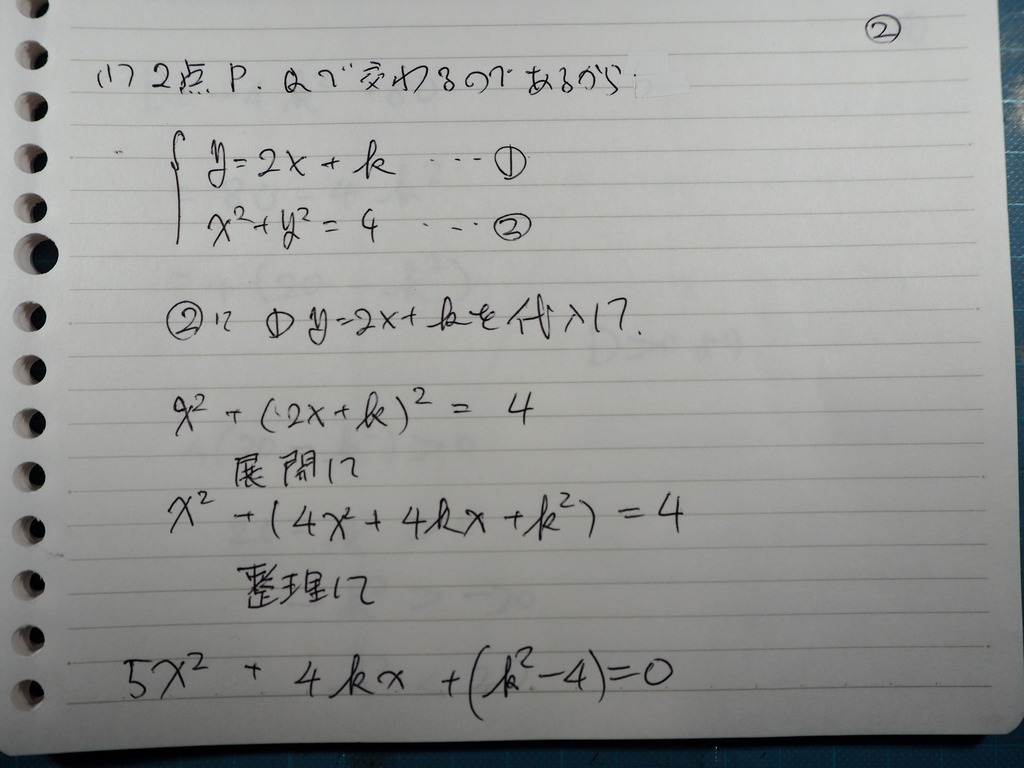 ②
(1) 2点 P. Qで交わるのであるから
y=2x+k ... ①
x²+y²=4 ... ②
②に ① y=2x+kを代入して.
x²+(2x+k)²=4
展開して
x²+(4x²+4kx+k²)=4
整理して
5x²+4kx+(k²-4)=0